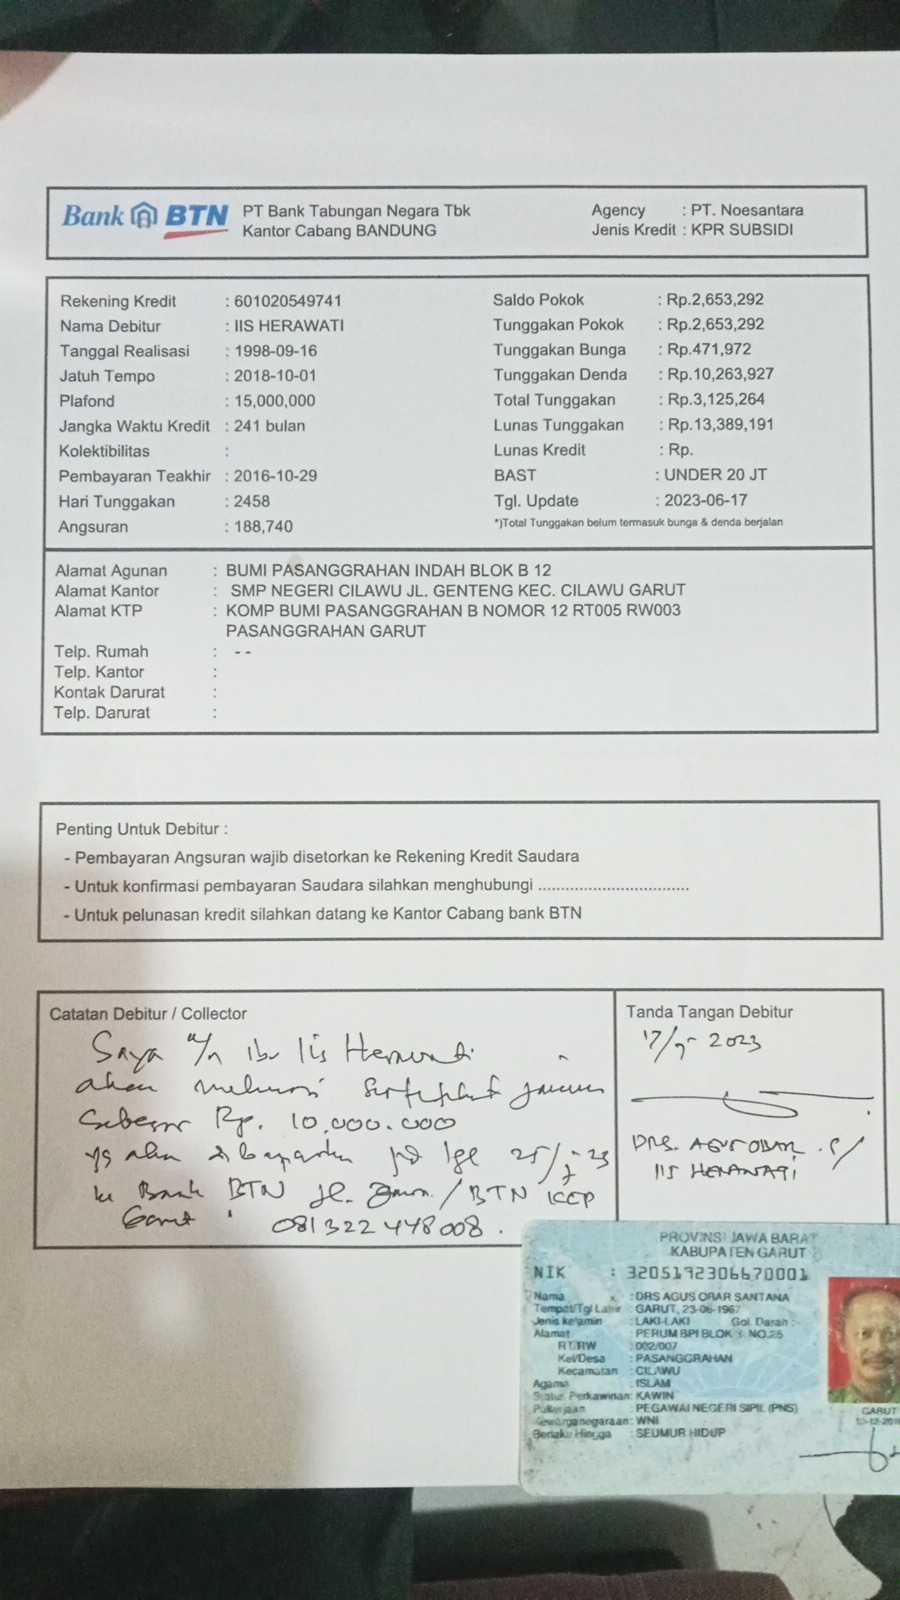 Bank BTN PT Bank Tabungan Negara Tbk
Kantor Cabang BANDUNG
Agency : PT. Noesantara
Jenis Kredit : KPR SUBSIDI
Rekening Kredit : 601020549741
Nama Debitur : IIS HERAWATI
Tanggal Realisasi : 1998-09-16
Jatuh Tempo : 2018-10-01
Plafond : 15,000,000
Jangka Waktu Kredit : 241 bulan
Kolektibilitas :
Pembayaran Teakhir : 2016-10-29
Hari Tunggakan : 2458
Angsuran : 188,740
Saldo Pokok : Rp.2,653,292
Tunggakan Pokok : Rp.2,653,292
Tunggakan Bunga : Rp.471,972
Tunggakan Denda : Rp.10,263,927
Total Tunggakan : Rp.3,125,264
Lunas Tunggakan : Rp.13,389,191
Lunas Kredit : Rp.
BAST : UNDER 20 JT
Tgl. Update : 2023-06-17
*)Total Tunggakan belum termasuk bunga & denda berjalan
Alamat Agunan : BUMI PASANGGRAHAN INDAH BLOK B 12
Alamat Kantor : SMP NEGERI CILAWU JL. GENTENG KEC. CILAWU GARUT
Alamat KTP : KOMP BUMI PASANGGRAHAN B NOMOR 12 RT005 RW003
PASANGGRAHAN GARUT
Telp. Rumah : --
Telp. Kantor :
Kontak Darurat :
Telp. Darurat :
Penting Untuk Debitur :
- Pembayaran Angsuran wajib disetorkan ke Rekening Kredit Saudara
- Untuk konfirmasi pembayaran Saudara silahkan menghubungi ..................................
- Untuk pelunasan kredit silahkan datang ke Kantor Cabang bank BTN
Catatan Debitur / Collector
Saya a/n ibu Iis Herawati
akan
sebesar Rp. 10.000.000
yg akan dibayarkan pd tgl 25/
ke Bank BTN Jl. / BTN KCP
Garut 081322448008.
Tanda Tangan Debitur
2023
DRS. AGUS OBAR . S/
IIS HERAWATI
PROVINSI JAWA BARAT
KABUPATEN GARUT
NIK : 3205192306670001
Nama : DRS AGUS OBAR SANTANA
Tempat/Tgl Lahir : GARUT, 23-06-1967
Jenis kelamin : LAKI-LAKI Gol. Darah :-
Alamat : PERUM BPI BLOK NO.25
RT/RW : 002/007
Kel/Desa : PASANGGRAHAN
Kecamatan : CILAWU
Agama : ISLAM
Status Perkawinan: KAWIN
Pekerjaan : PEGAWAI NEGERI SIPIL (PNS)
Kewarganegaraan: WNI
Berlaku Hingga : SEUMUR HIDUP
GARUT